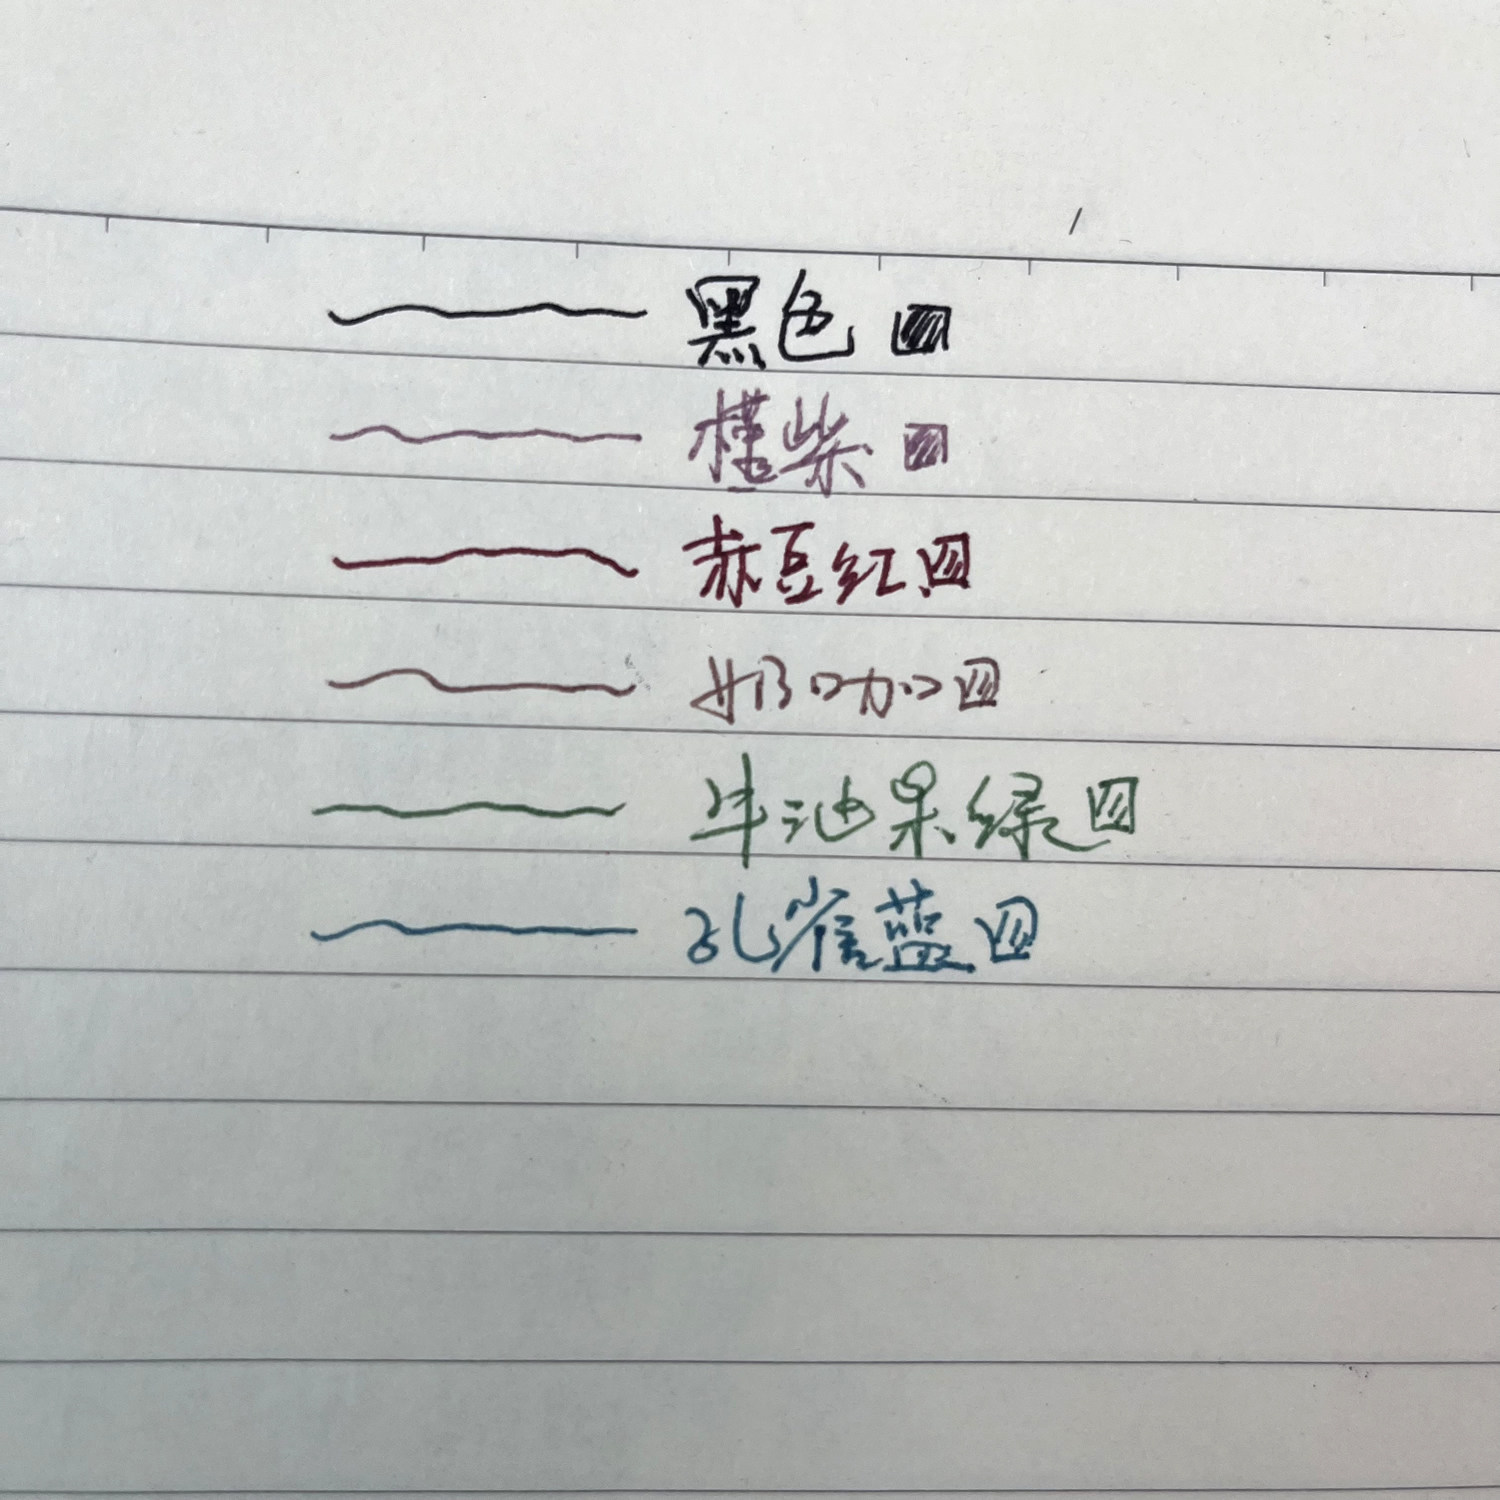 黑色
槿柴
赤豆红
奶咖
牛油果绿
孔雀蓝